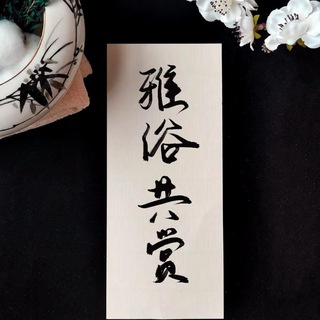 雅俗共赏